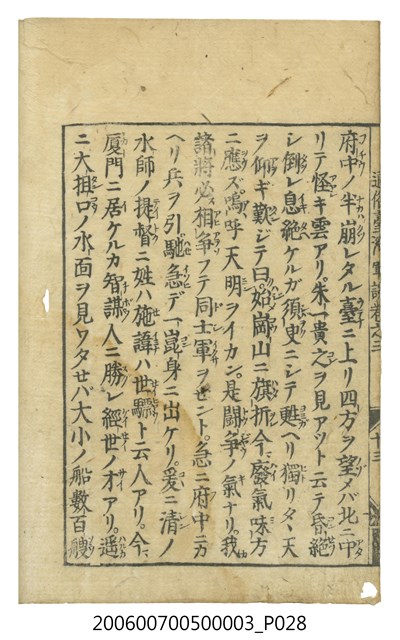 通俗臺灣軍談卷之三 十三
府中ノ半崩レタル臺ニ上リ四方ヲ望メバ北ニ中
リテ怪キ雲アリ。朱一貴之ヲ見アツト云テ昏絶
シ倒レ息絶ケルガ須臾ニシテ甦ヘリ獨リタヽ天
ヲ仰ギ歎ジテ曰。始崗山ニ旗折今ニ廢氣味方
ニ應ズ。嗚呼天明ヲイカン。是闘争ノ氣ナリ。我
諸將必相爭フテ同士軍ヲセント。急ニ府中ニカ
ヘリ兵ヲ引。馳急デ一崑身ニ出ケリ。爰ニ清ノ
水師ノ提督ニ姓ハ施諱ハ世驃ト云人アリ。今
厦門ニ居ケルカ智謀人ニ勝レ經世ノオアリ。遥
ニ大担口ノ水面ヲ見ワタセバ大小ノ船數百艘
200600700500003_P028